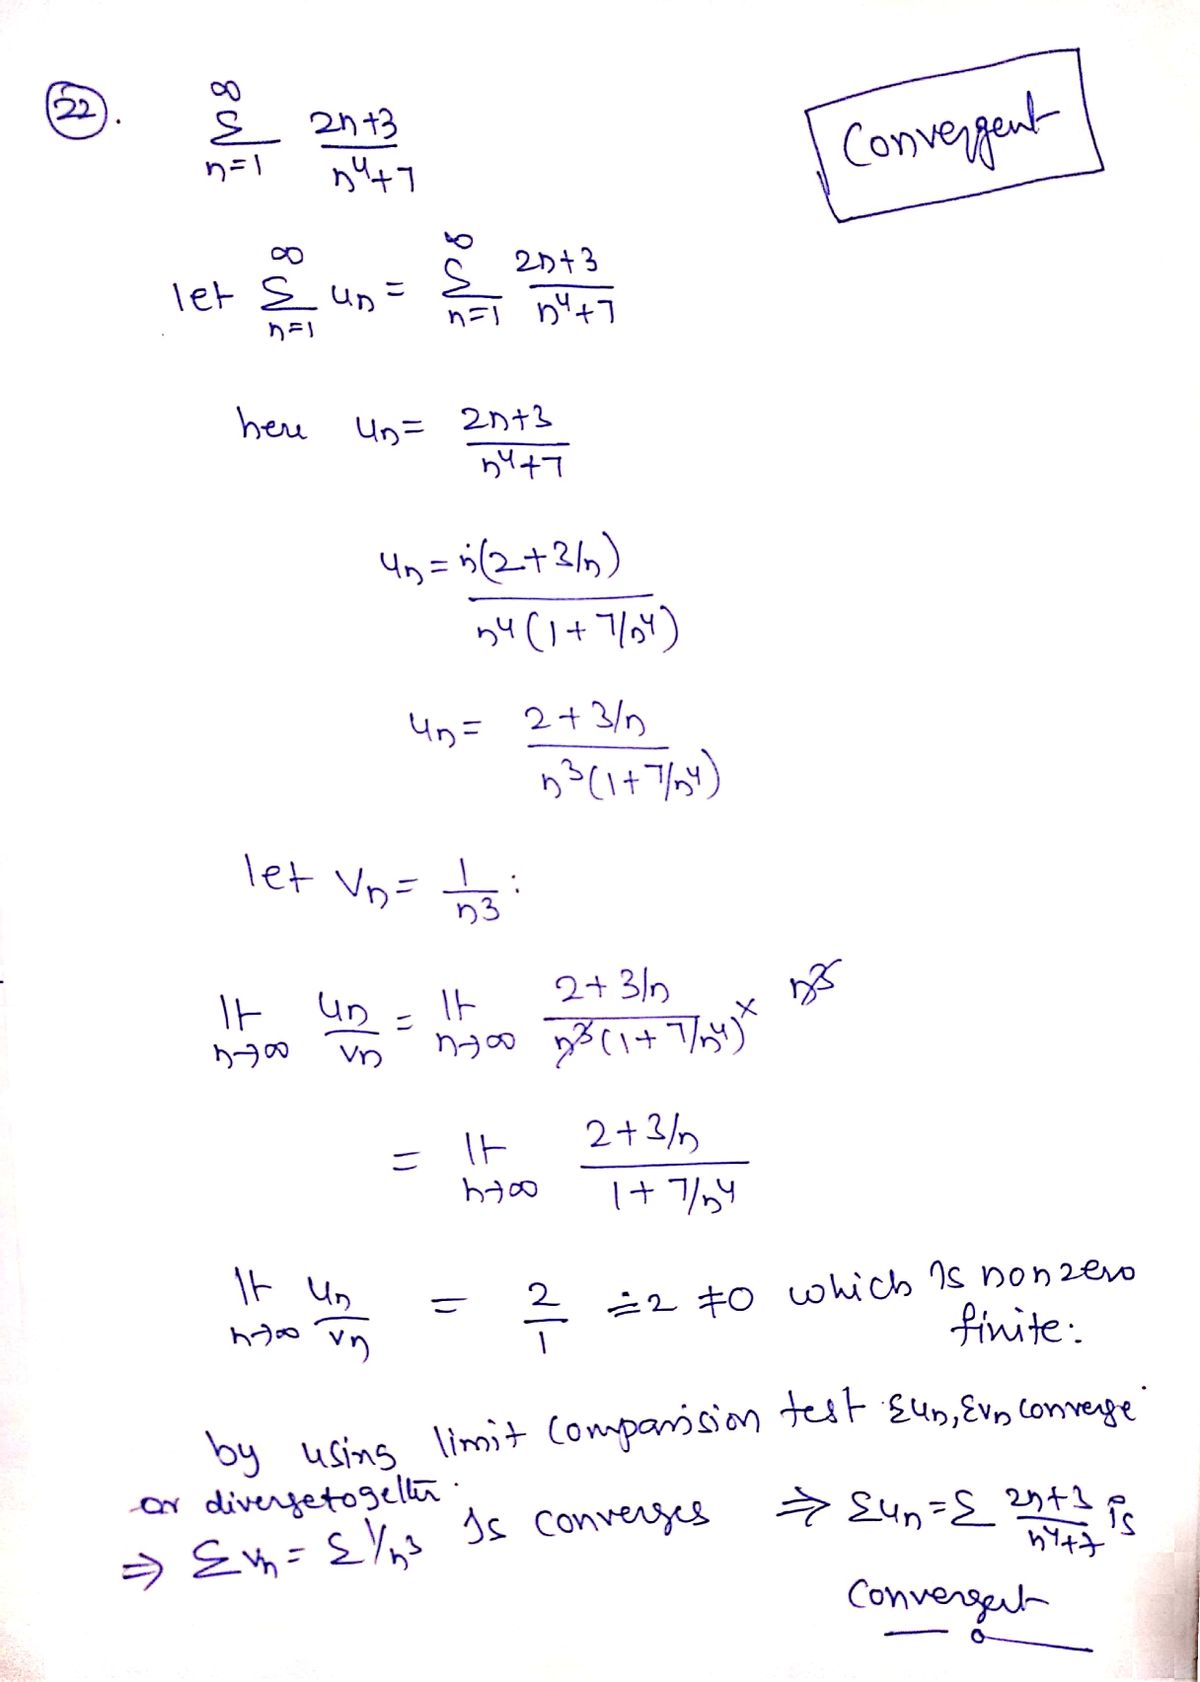 22.
∞
Σ 2n+3
n=1 n⁴+7
Convergent
let ∞ Σ n=1 un = ∞ Σ n=1 2n+3 / n⁴+7
here un = 2n+3 / n⁴+7
un = n(2+3/n) / n⁴(1+7/n⁴)
un = 2+3/n / n³(1+7/n⁴)
let vn = 1/n3 :
lt n→∞ un/vn = lt n→∞ 2+3/n / n³(1+7/n⁴) × n3
= lt n→∞ 2+3/n / 1+7/n⁴
lt n→∞ un/vn = 2/1 = 2 ≠0 which is nonzero
finite:
by using limit comparision test Σun, Σvn converge
or diverge together.
⇒ Σvn = Σ1/n³ is converges ⇒ Σun = Σ 2n+3 / n⁴+7 is
convergent